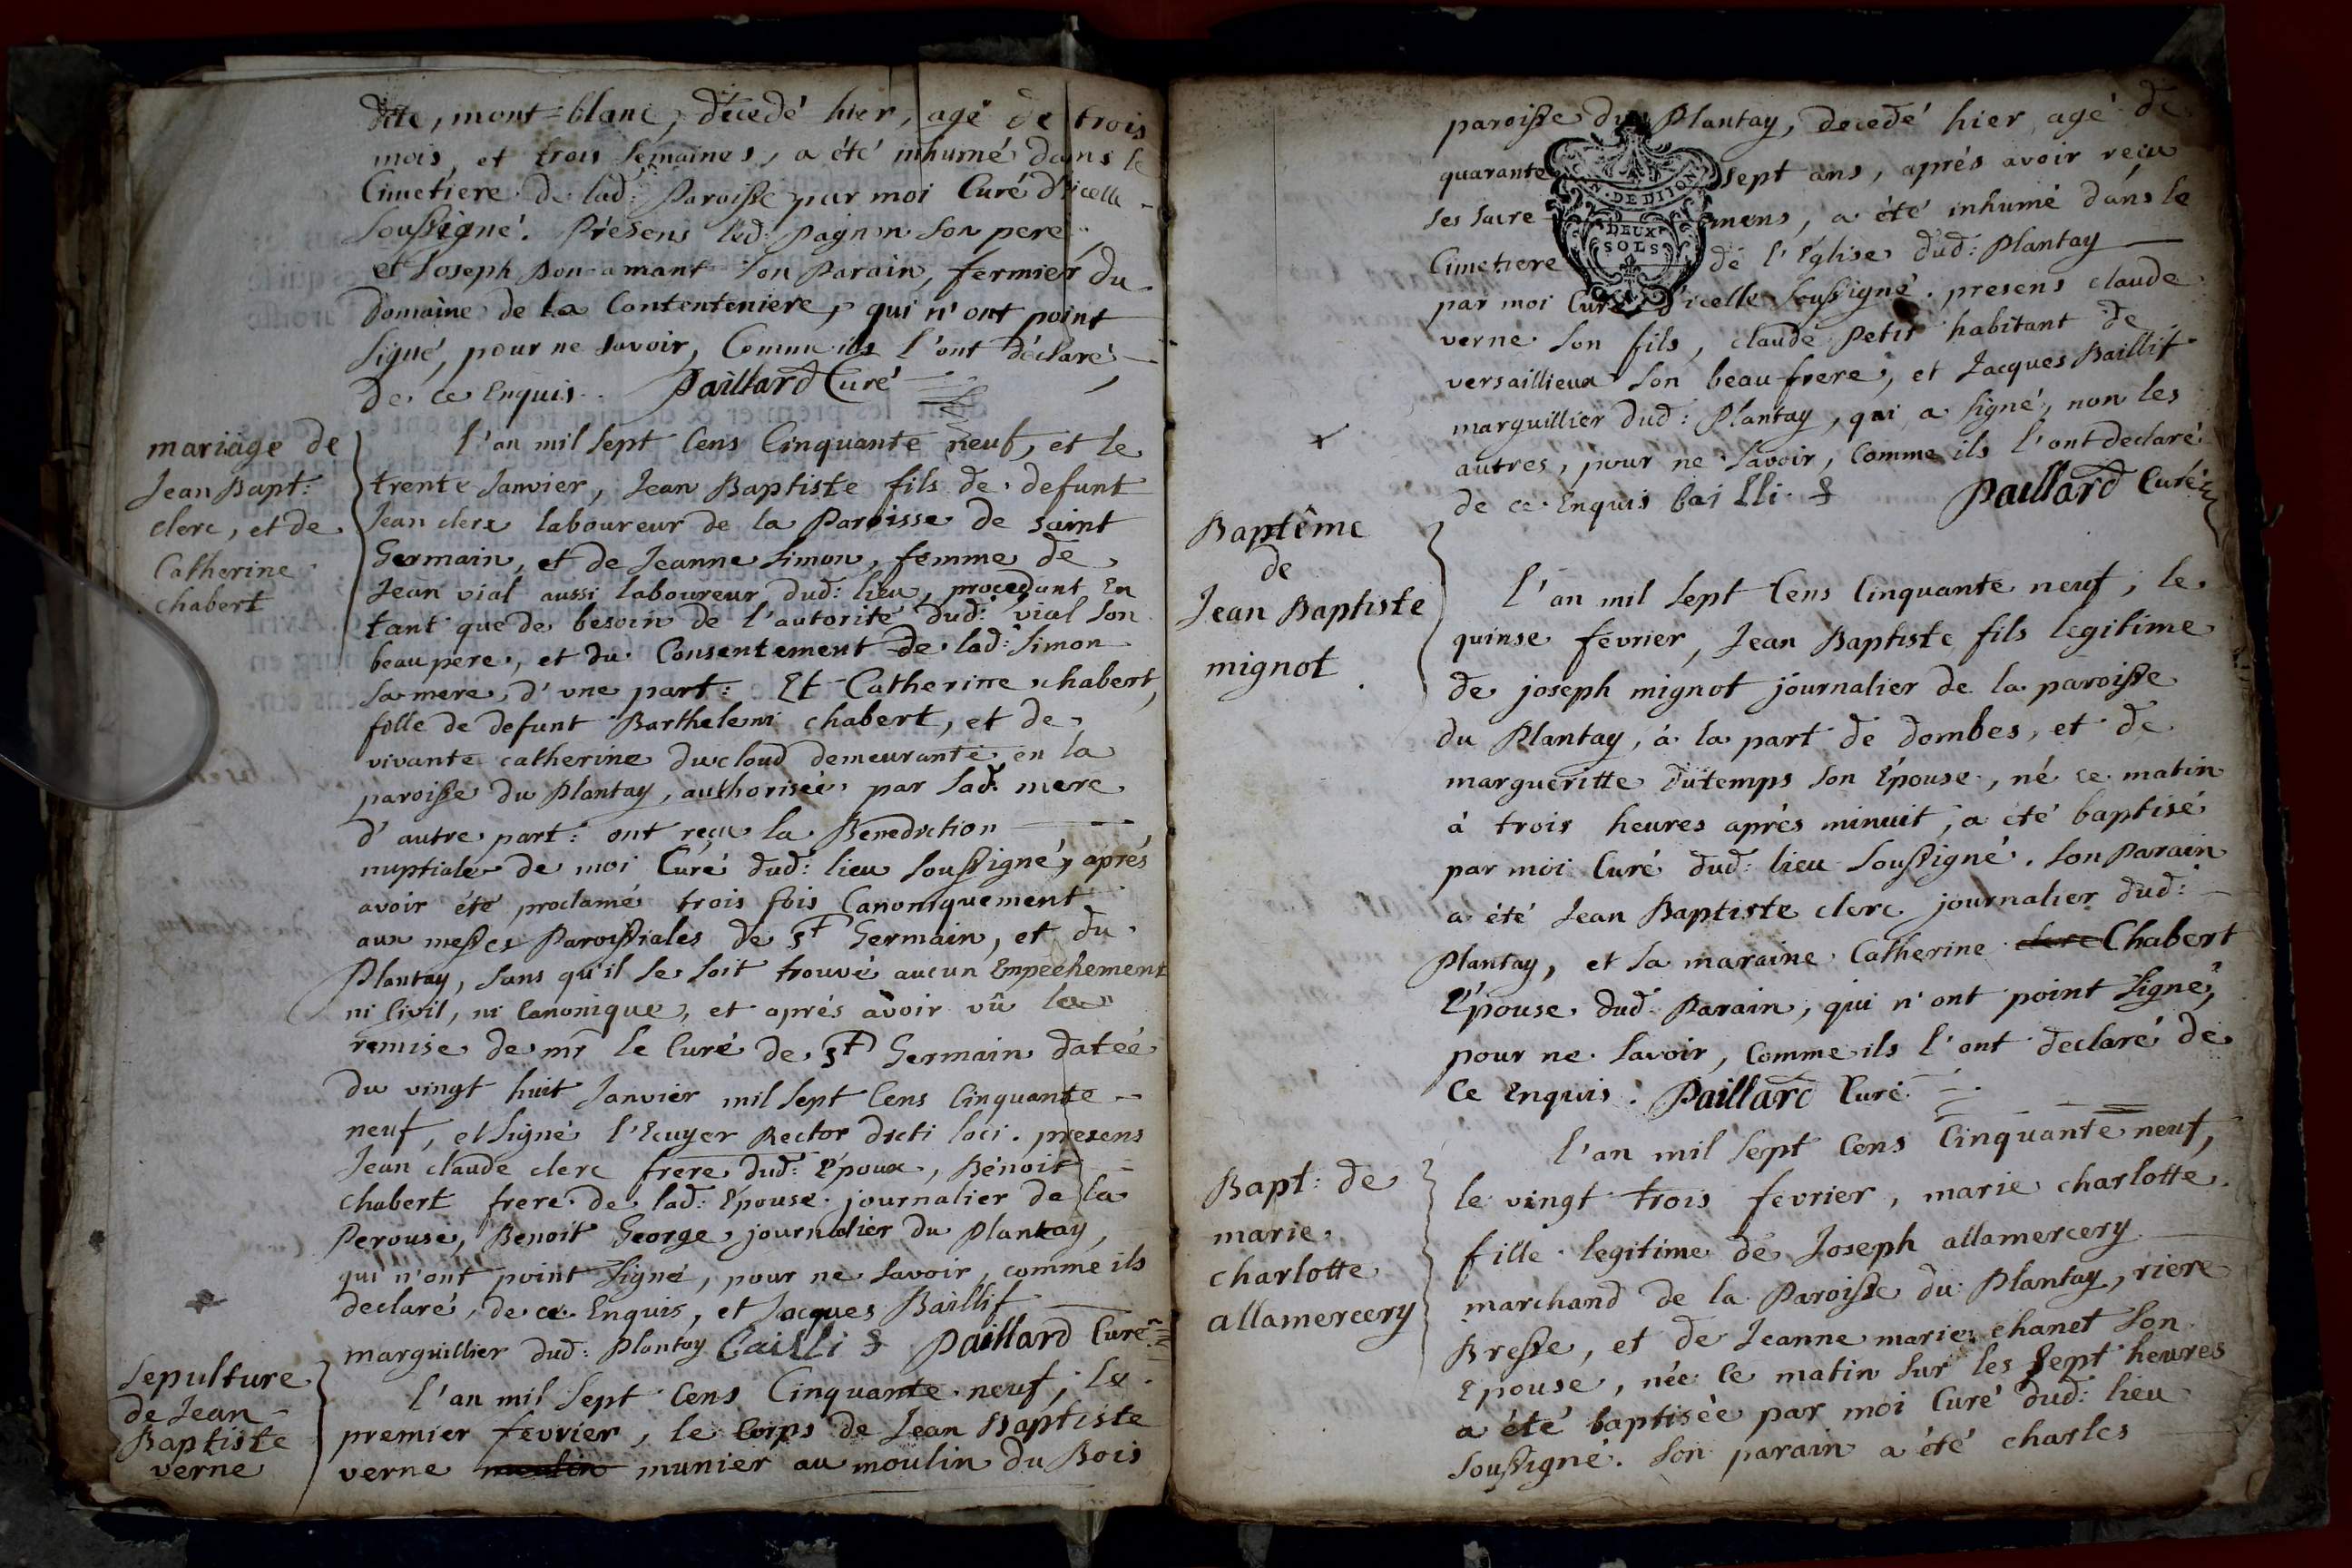 dite, mont-blanc, décedé hier, agé de trois
mois, et trois semaines, a été inhumé dans le
Cimetiere de lad: Paroisse par moi Curé d'icelle
soussigné. Présens led: pagnon son pere
et Joseph Bon amant son Parain, fermier du
Domaine de la Contenteniere, qui n'ont point
signé, pour ne savoir, Comme ils l'ont déclaré
de ce Enquis. Paillard Curé
mariage de
Jean Bapt:
clerc, et de
Catherine
chabert
l'an mil sept Cens Cinquante neuf, et le
trente Janvier, Jean Baptiste fils de defunt
Jean clerc laboureur de la Paroisse de saint
Germain, et de Jeanne Simon, femme de
Jean vial aussi laboureur dud: lieu, procedant En
tant que de besoin de l'autorité dud: vial son
beau pere, et du Consentement de lad: Simon
sa mere, d'une part: Et Catherine chabert,
fille de defunt Barthelemi chabert, et de
vivante catherine ducloud demeurante en la
paroisse du Plantay, authorisée par lad: mere
d'autre part: ont reçu la Benediction
nuptiale de moi Curé dud: lieu soussigné, aprés
avoir été proclamé trois fois Canoniquement
aux messes Paroissiales de St Germain, et du
Plantay, sans qu'il se soit trouvé aucun Empechement
ni Civil, ni Canonique, et aprés avoir vû la
remise de mr le Curé de St Germain datée
du vingt huit Janvier mil sept Cens Cinquante
neuf, et signé l'Ecuyer Rector dicti loci. presens
Jean claude clerc frere dud: Epoux, Bénoit
chabert frere de lad: Epouse journalier de la
Perouse, Benoit George journalier du Plantay,
qui n'ont point signé, pour ne savoir, comme ils
declaré, de ce Enquis, et Jacques Baillif
marguillier dud: Plantay Bailli Paillard Curé
Sepulture
de Jean
Baptiste
verne
l'an mil sept Cens Cinquante neuf, le
premier fevrier, le Corps de Jean Baptiste
verne moulin munier au moulin du Bois
paroisse du Plantay, decedé hier agé de
quarante sept ans, aprés avoir reçu
ses sacre mens, a été inhumé dans le
Cimetiere de l'Eglise dud: Plantay
N. DE DIJON
DEUX
SOLS
par moi Curé d'icelle soussigné. presens claude
verne son fils, claude Petit habitant de
versaillieux son beau frere, et Jacques Baillif
marguillier dud: Plantay, qui a signé, non les
autres, pour ne savoir, Comme ils l'ont declaré
de ce Enquis bailli Paillard Curé
Baptême
de
Jean Baptiste
mignot
l'an mil sept Cens Cinquante neuf, le
quinse février, Jean Baptiste fils legitime
de joseph mignot journalier de la paroisse
du Plantay, à la part de Dombes, et de
margueritte Dutemps son Epouse, né ce matin
à trois heures aprés minuit, a été baptisé
par moi Curé dud: lieu soussigné. son Parain
a été Jean Baptiste clerc journalier dud:
Plantay, et sa maraine Catherine clerc Chabert
Epouse dud: Parain, qui n'ont point signé,
pour ne savoir, Comme ils l'ont declaré de
Ce Enquis. Paillard Curé
Bapt: de
marie
charlotte
allamercery
l'an mil sept Cens Cinquante neuf,
le vingt trois fevrier, marie charlotte
fille legitime de Joseph allamercery
marchand de la Paroisse du Plantay, riere
Bresse, et de Jeanne marie chanet son
Epouse, née ce matin sur les sept heures
a été baptisée par moi Curé dud: lieu
soussigné. son parain a été charles